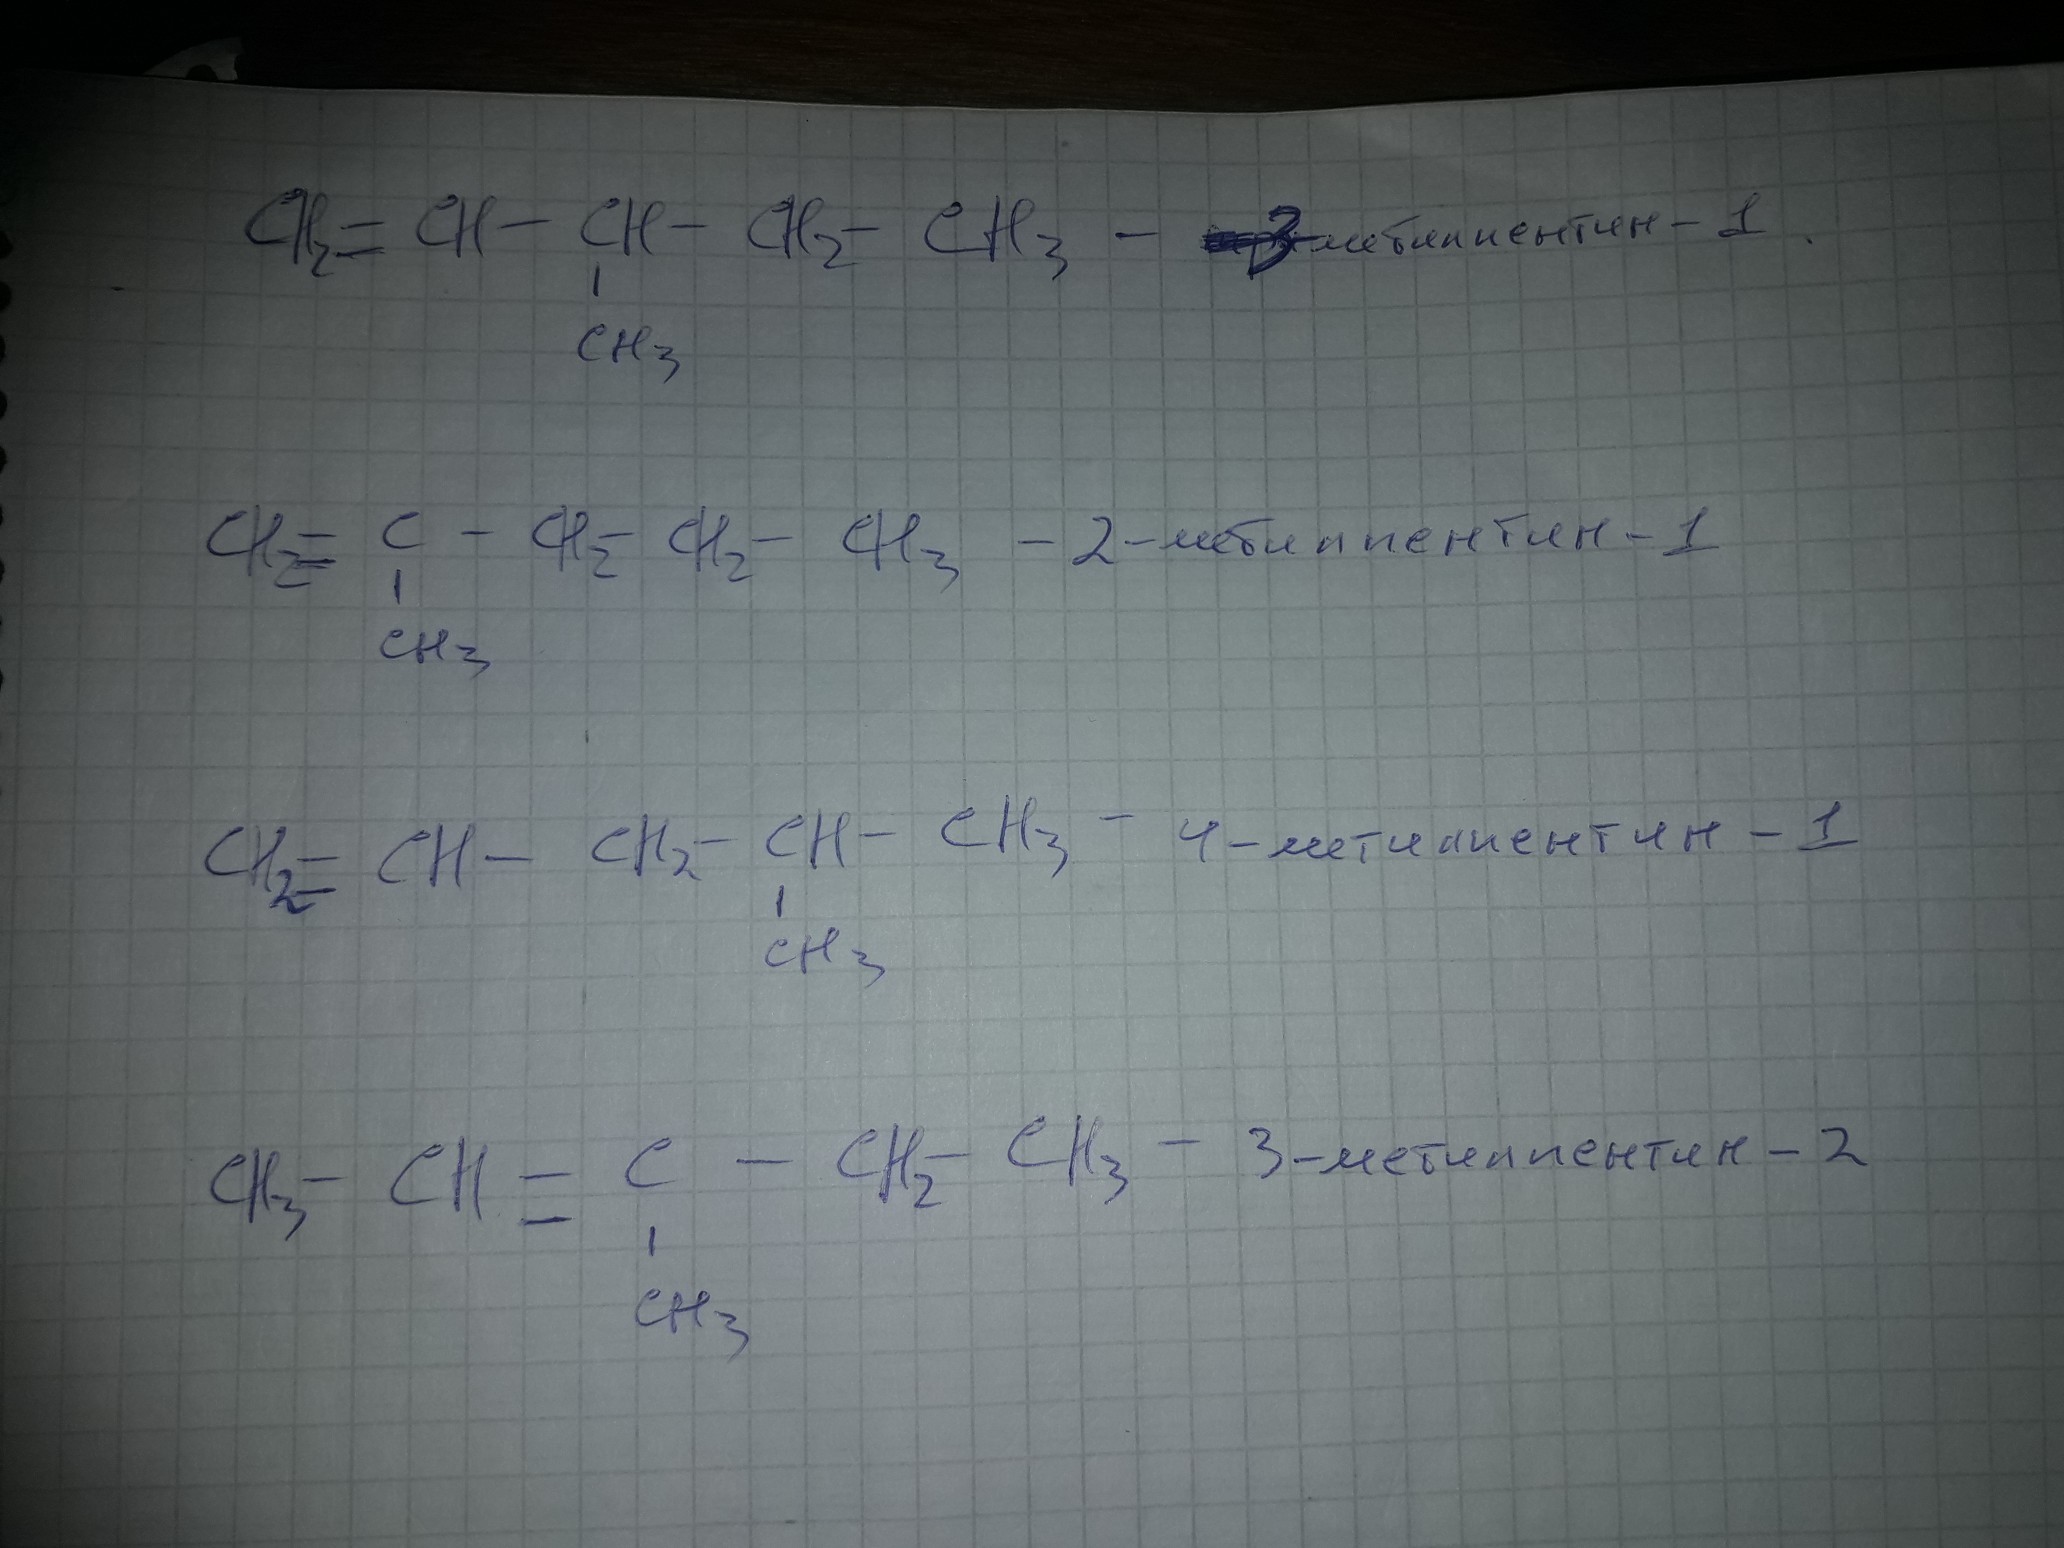 CH₂ = CH - CH - CH₂ - CH₃ - 3-метилпентин-1.
CH₃
CH₂ = C - CH₂ - CH₂ - CH₃ - 2-метилпентин-1
CH₃
CH₂ = CH - CH₂ - CH - CH₃ - 4-метилпентин-1
CH₃
CH₃ - CH = C - CH₂ - CH₃ - 3-метилпентин-2
CH₃